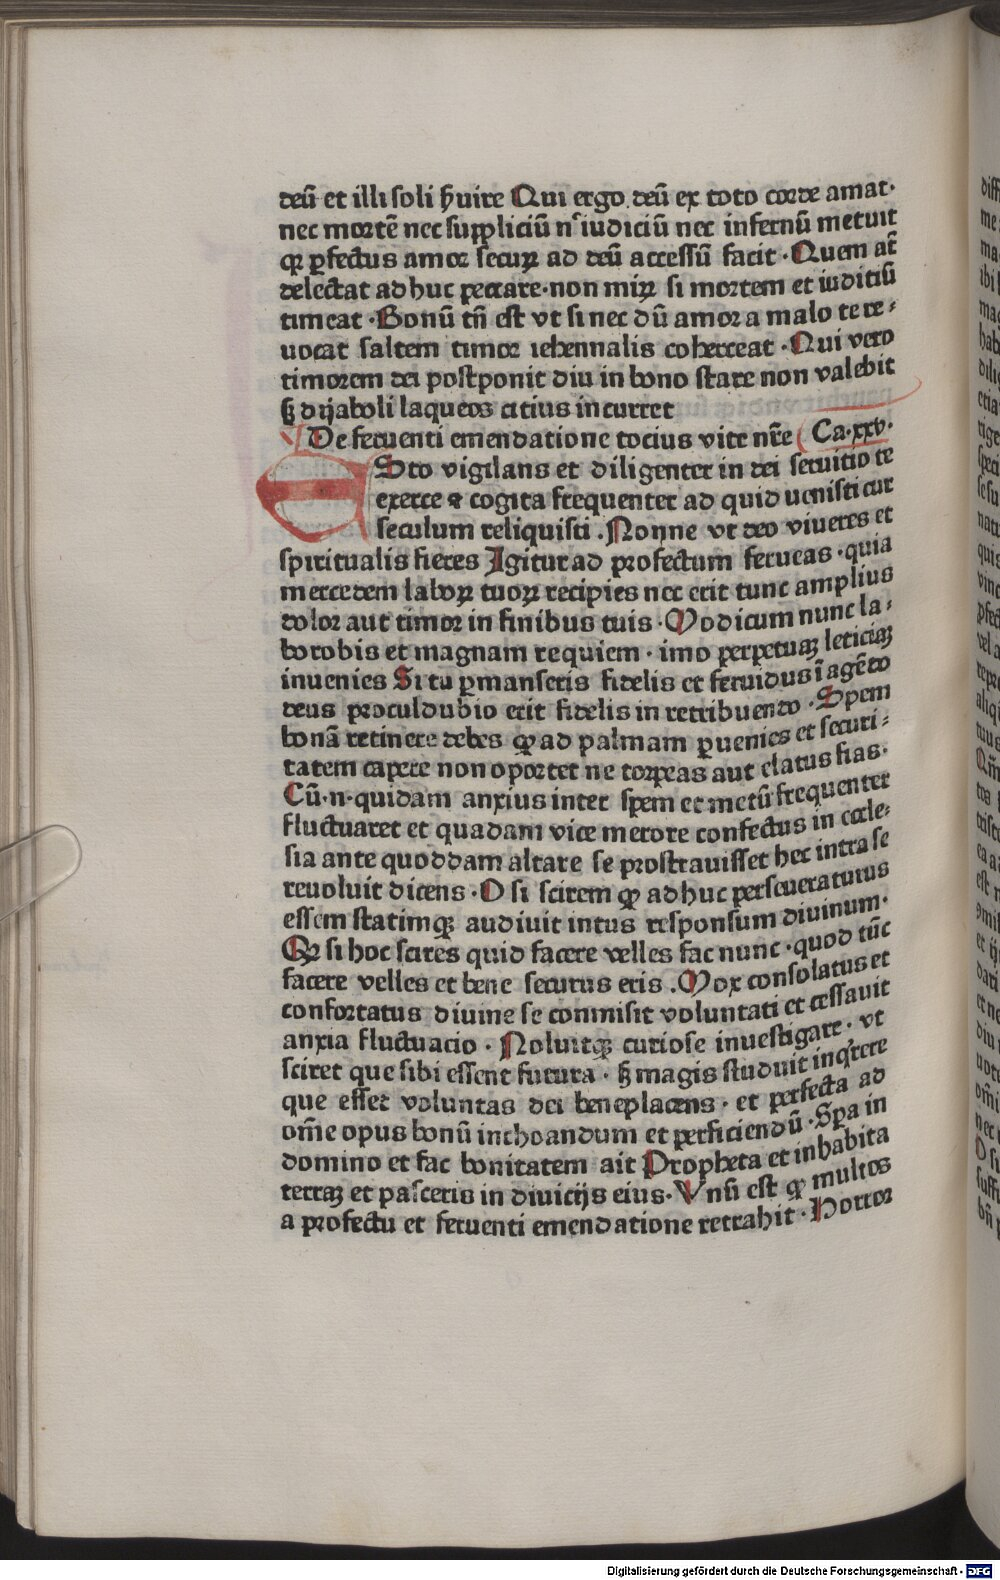 deū et illi soli ẜuire Qui ergo deū ex toto corde amat·
nec mortē nec suppliciū nͨ iudiciū nec infernū metuit
qꝫ ꝑfectus amor securꝫ ad deū accessū facit· Quem at̄
delectat adhuc peccare·non mirꝫ si mortem et iuditiū
timeat· Bonū tn̄ est vt si nec dū amor a malo te re⸗
uocat saltem timor iehennalis coherceat· Qui vero
timorem dei postponit diu in bono stare non valebit
ꝫ dijaboli laqueos citius incurret
De feruenti emendatione tocius vite nr̄e Ca·xxv·
ESto vigilans et diligenter in dei seruitio te
exerce ⁊ cogita frequenter ad quid uenisti cur
seculum reliquisti. Nonne vt deo viueres et
spiritualis fieres Igitur ad profectum ferueas· quia
mercedem laborꝝ tuorꝝ recipies nec erit tunc amplius
dolor aut timor in finibus tuis· Modicum nunc la⸗
borobis et magnam requiem· imo perpetuaꝫ leticiaꝫ
inuenies Si tu ꝑmanseris fidelis et feruidus ī agēdo
deus proculdubio erit fidelis in retribuendo· Spem
bonā retinere debes qꝫ ad palmam ꝑuenies et securi⸗
tatem capere non oportet ne torpeas aut elatus fias·
Cū·n·quidam anxius inter spem et metū frequenter
fluctuaret et quadam vice merore confectus in eccle⸗
sia ante quoddam altare se prostrauisset hec intra se
reuoluit dicens· O si scirem qꝫ adhuc perseueraturus
essem statimqꝫ audiuit intus responsum diuinum·
Qꝫ si hoc scires quid facere velles fac nunc· quod tūc
facere velles et bene securus eris. Mox consolatus et
confortatus diuine se commisit voluntati et cessauit
anxia fluctuacio· Noluitqꝫ curiose inuestigare· vt
sciret que sibi essent futura· ꝫ magis studuit inq̇rere
que esset voluntas dei beneplacens· et perfecta ad
om̄e opus bonū inchoandum et perficiendū· Spa in
domino et fac bonitatem ait Propheta et inhabita
terraꝫ et pasceris in diuicijs eius· Vnū est qꝫ multos
a profectu et feruenti emendatione retrahit· Horror
Digitalisierung gefördert durch die Deutsche Forschungsgemeinschaft - DFG